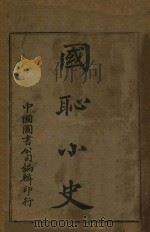 國恥小史
中國圖書公司編輯印行